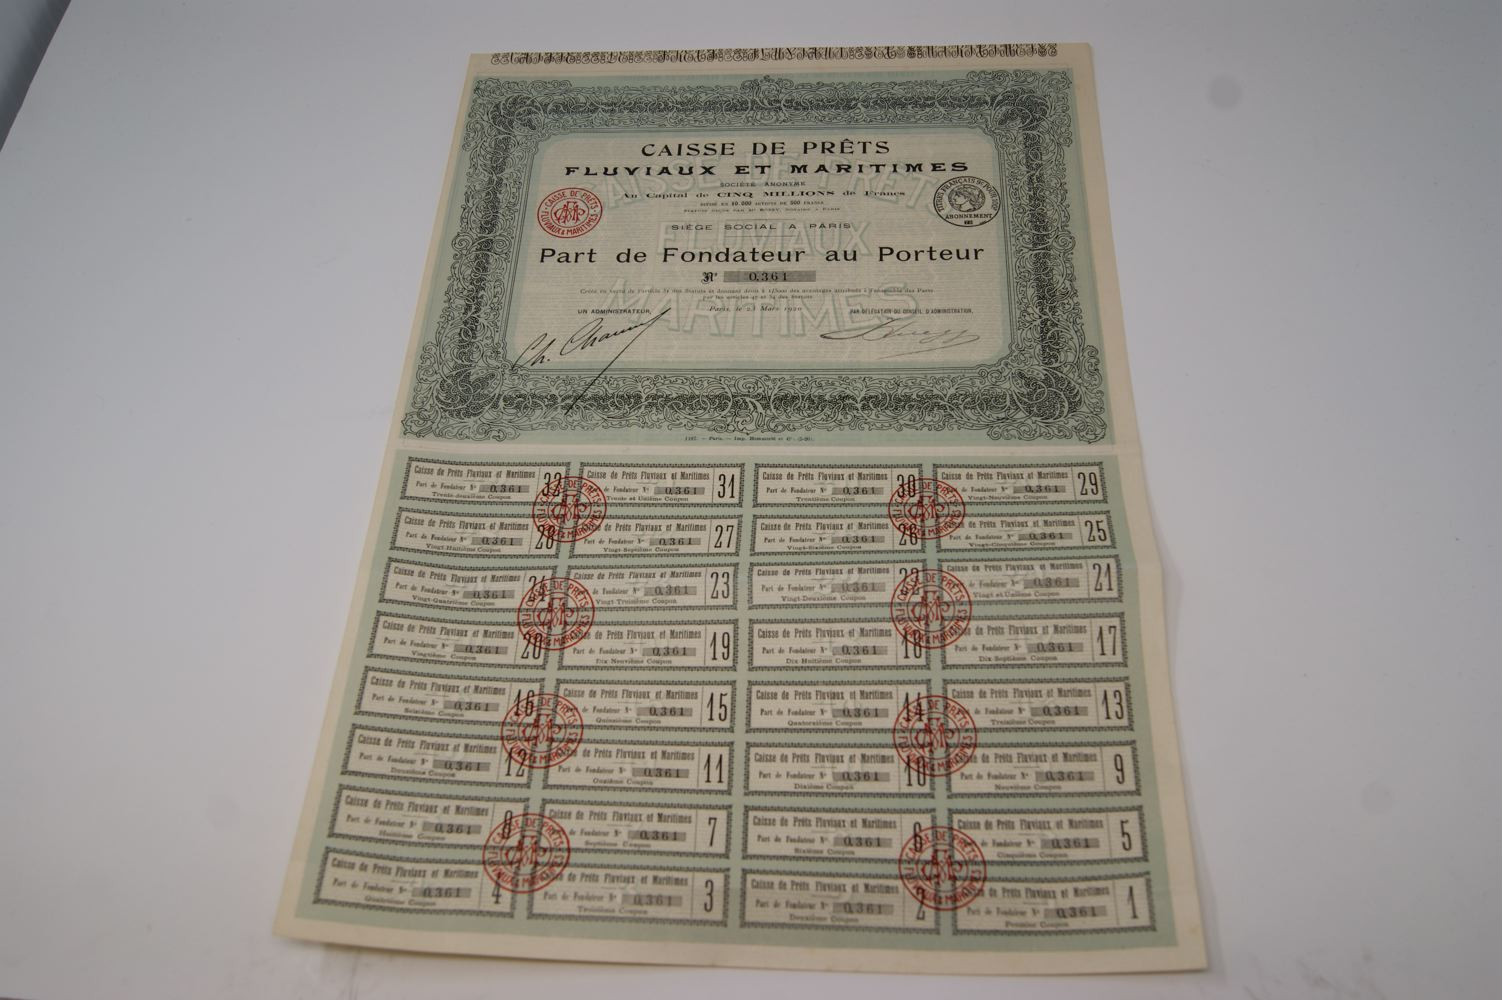 CAISSE DE PRÊTS
FLUVIAUX ET MARITIMES
SOCIÉTÉ ANONYME
Au Capital de CINQ MILLIONS de Francs
DIVISÉ EN 10.000 ACTIONS DE 500 FRANCS
SIÈGE SOCIAL A PARIS
Part de Fondateur au Porteur
N° 0,361
par les articles 47 et 54 des Statuts
UN ADMINISTRATEUR,
Paris, le 23 Mars 1920
PAR DÉLÉGATION DU CONSEIL D'ADMINISTRATION,
CAISSE DE PRÊTS FLUVIAUX & MARITIMES
ABONNEMENT
Caisse de Prêts Fluviaux et Maritimes 32
Part de Fondateur N° 0,361
Trente deuxième Coupon
Caisse de Prêts Fluviaux et Maritimes 31
de Fondateur N° 0,361
Trente et Unième Coupon
Caisse de Prêts Fluviaux et Maritimes 30
Part de Fondateur N° 0,361
Trentième Coupon
de Prêts Fluviaux et Maritimes 29
de Fondateur N° 0,361
Vingt-Neuvième Coupon
Caisse de Prêts Fluviaux et Maritimes 28
Part de Fondateur N° 0,361
Vingt-Huitième Coupon
de Prêts Fluviaux et Maritimes 27
Part de Fondateur N° 0,361
Vingt-Septième Coupon
Caisse de Prêts Fluviaux et Maritimes 26
Part de Fondateur N° 0,361
Vingt-Sixième Coupon
de Prêts Fluviaux et Maritimes 25
Part de Fondateur N° 0,361
Vingt-Cinquième Coupon
Caisse de Prêts Fluviaux et Maritimes 24
Part de Fondateur N° 0,361
Vingt-Quatrième Coupon
Caisse de Prêts Fluviaux et Maritimes 23
de Fondateur N° 0,361
Vingt-Troisième Coupon
Caisse de Prêts Fluviaux et Maritimes 22
Part de Fondateur N° 0,361
Vingt-Deuxième Coupon
Caisse de Prêts Fluviaux et Maritimes 21
de Fondateur N° 0,361
Vingt et Unième Coupon
Caisse de Prêts Fluviaux et Maritimes 20
Part de Fondateur N° 0,361
Vingtième Coupon
de Prêts Fluviaux et Maritimes 19
Part de Fondateur N° 0,361
Dix Neuvième Coupon
Caisse de Prêts Fluviaux et Maritimes 18
Part de Fondateur N° 0,361
Dix Huitième Coupon
de Prêts Fluviaux et Maritimes 17
Part de Fondateur N° 0,361
Dix Septième Coupon
Caisse de Prêts Fluviaux et Maritimes 16
Part de Fondateur N° 0,361
Seizième Coupon
Caisse de Prêts Fluviaux et Maritimes 15
de Fondateur N° 0,361
Quinzième Coupon
Caisse de Prêts Fluviaux et Maritimes 14
Part de Fondateur N° 0,361
Quatorzième Coupon
Caisse de Prêts Fluviaux et Maritimes 13
de Fondateur N° 0,361
Treizième Coupon
Caisse de Prêts Fluviaux et Maritimes 12
Part de Fondateur N° 0,361
Douzième Coupon
de Prêts Fluviaux et Maritimes 11
Part de Fondateur N° 0,361
Onzième Coupon
Caisse de Prêts Fluviaux et Maritimes 10
Part de Fondateur N° 0,361
Dixième Coupon
de Prêts Fluviaux et Maritimes 9
Part de Fondateur N° 0,361
Neuvième Coupon
Caisse de Prêts Fluviaux et Maritimes 8
Part de Fondateur N° 0,361
Huitième Coupon
Caisse de Prêts Fluviaux et Maritimes 7
de Fondateur N° 0,361
Septième Coupon
Caisse de Prêts Fluviaux et Maritimes 6
Part de Fondateur N° 0,361
Sixième Coupon
Caisse de Prêts Fluviaux et Maritimes 5
de Fondateur N° 0,361
Cinquième Coupon
Caisse de Prêts Fluviaux et Maritimes 4
Part de Fondateur N° 0,361
Quatrième Coupon
de Prêts Fluviaux et Maritimes 3
Part de Fondateur N° 0,361
Troisième Coupon
Caisse de Prêts Fluviaux et Maritimes 2
Part de Fondateur N° 0,361
Deuxième Coupon
de Prêts Fluviaux et Maritimes 1
Part de Fondateur N° 0,361
Premier Coupon